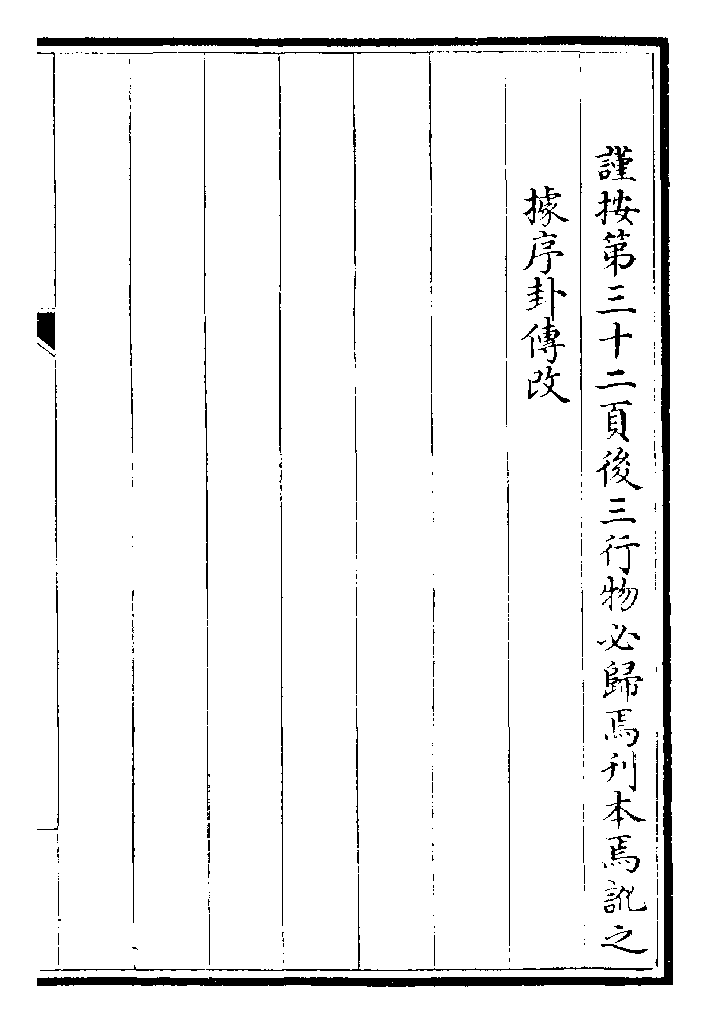 謹按第三十二頁後三行物必歸焉刊本焉訛之
據序卦傳改